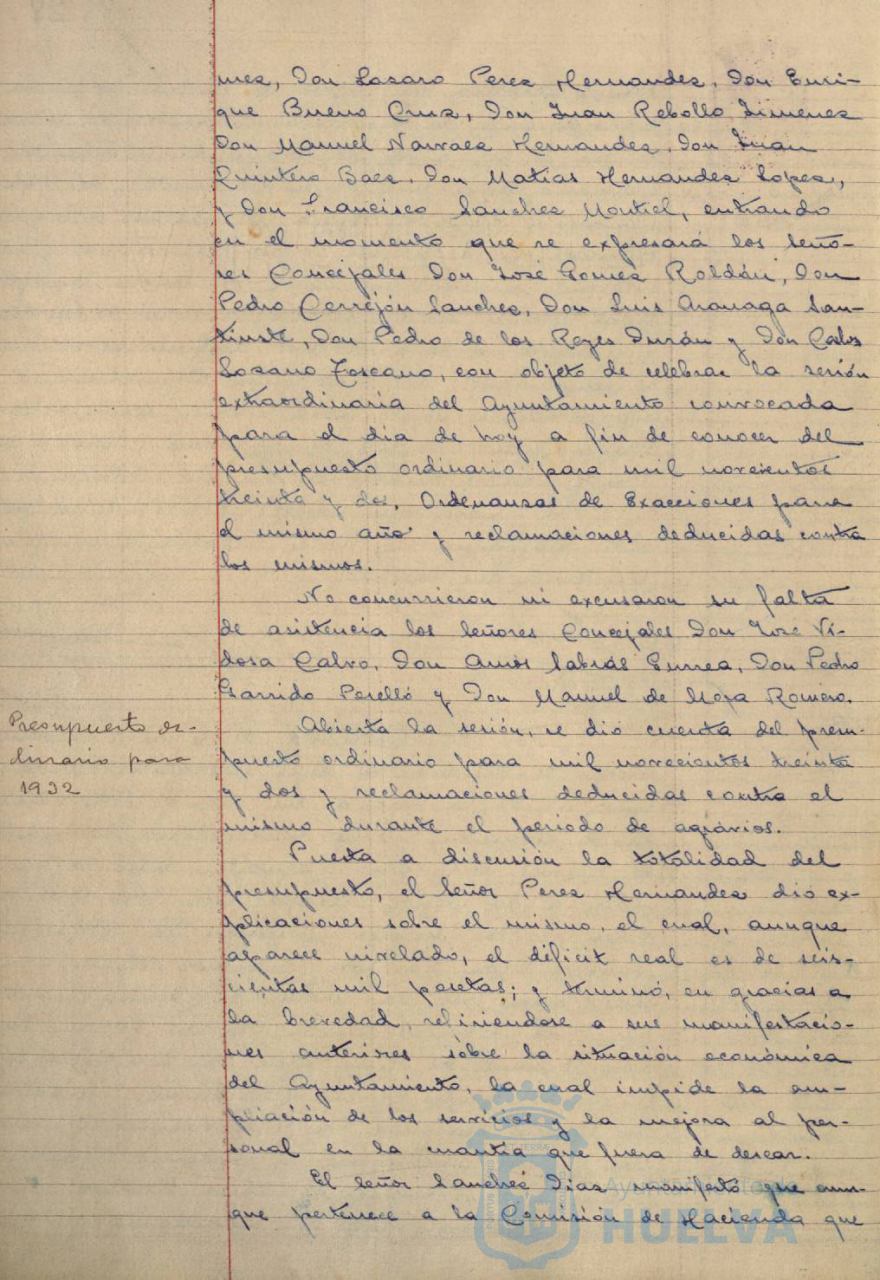 mez, Don Lazaro Perez Hernandez, Don Enri-
que Bueno Cruz, Don Juan Rebollo Jimenez
Don Manuel Narvaez Hernandez, Don Juan
Quintero Baez, Don Matias Hernandez Lopez,
y Don Francisco Sanchez Montiel, entrando
en el momento que se expresará los Seño-
res Concejales Don José Gomez Roldán, Don
Pedro Cerrejón Sanchez, Don Luis Aronaga San-
tiuste, Don Pedro de los Reyes Durán y Don Carlos
Lozano Toscano, con objeto de celebrar la sesión
extraordinaria del Ayuntamiento convocada
para el dia de hoy a fin de conocer del
presupuesto ordinario para mil novecientos
treinta y dos, Ordenanzas de Exacciones para
el mismo año y reclamaciones deducidas contra
los mismos.
No concurrieron ni excusaron su falta
de asistencia los Señores Concejales Don José Vi-
dosa Calvo, Don Amós Sabrás Gurrea, Don Pedro
Garrido Perelló y Don Manuel de Mora Romero.
Presupuesto or-
dinario para
1932
Abierta la sesión, se dió cuenta del presu-
puesto ordinario para mil novecientos treinta
y dos y reclamaciones deducidas contra el
mismo durante el periodo de agravios.
Puesta a discusión la totalidad del
presupuesto, el Señor Perez Hernandez dió ex-
plicaciones sobre el mismo, el cual, aunque
aparece nivelado, el déficit real es de seis-
cientas mil pesetas; y terminó, en gracias a
la brevedad, refiriendose a sus manifestacio-
nes anteriores sobre la situación económica
del Ayuntamiento, la cual impide la am-
pliación de los servicios y la mejora al per-
sonal en la cuantia que fuera de desear.
El Señor Sanchez Diaz manifestó que aun-
que pertenece a la Comisión de Hacienda que
Ayuntamiento
HUELVA